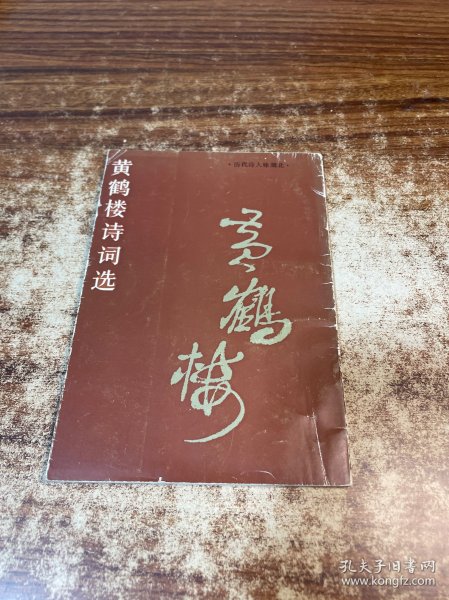 黄鹤楼诗词选
·历代诗人咏湖北·
黄鹤楼
孔夫子旧书网
www.kongfz.com